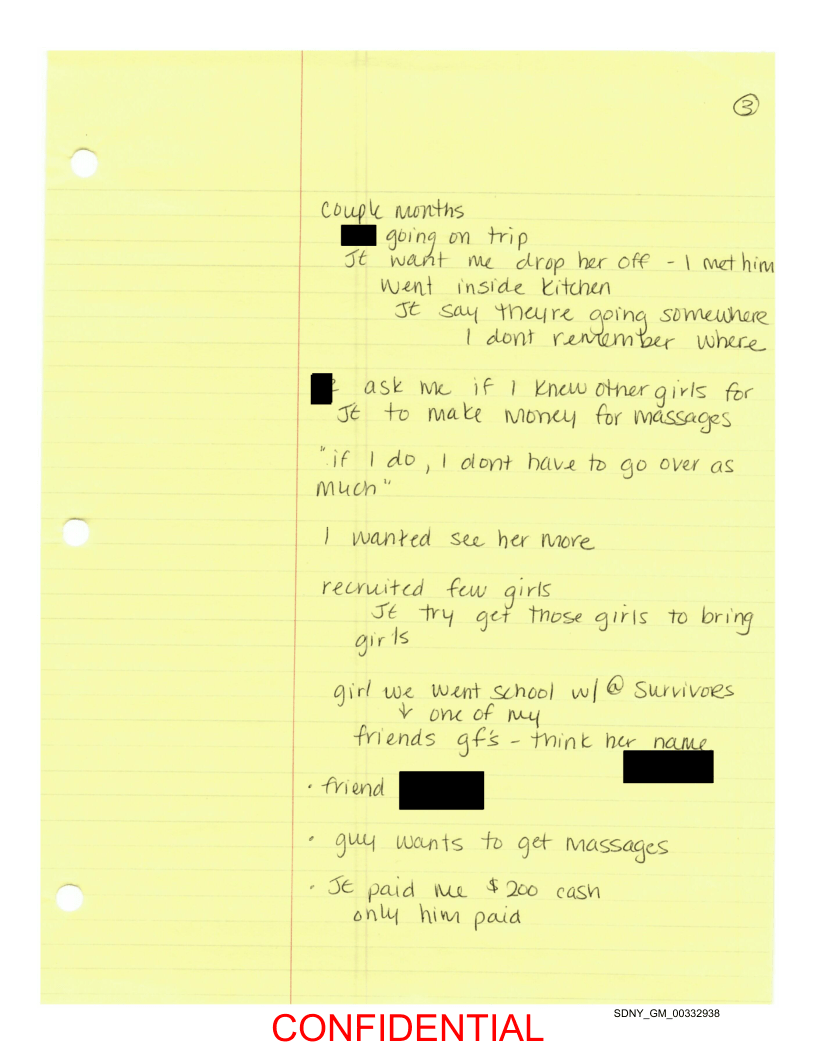 3
couple months
going on trip
JE want me drop her off - I met him
went inside kitchen
JE say theyre going somewhere
I dont remember where
ask me if I knew other girls for
JE to make money for massages
"if I do, I dont have to go over as
much"
I wanted see her more
recruited few girls
JE try get those girls to bring
girls
girl we went school w/ @ Survivors
↓ one of my
friends gf's - think her name
• friend
• guy wants to get massages
• JE paid me $200 cash
only him paid
SDNY_GM_00332938
CONFIDENTIAL